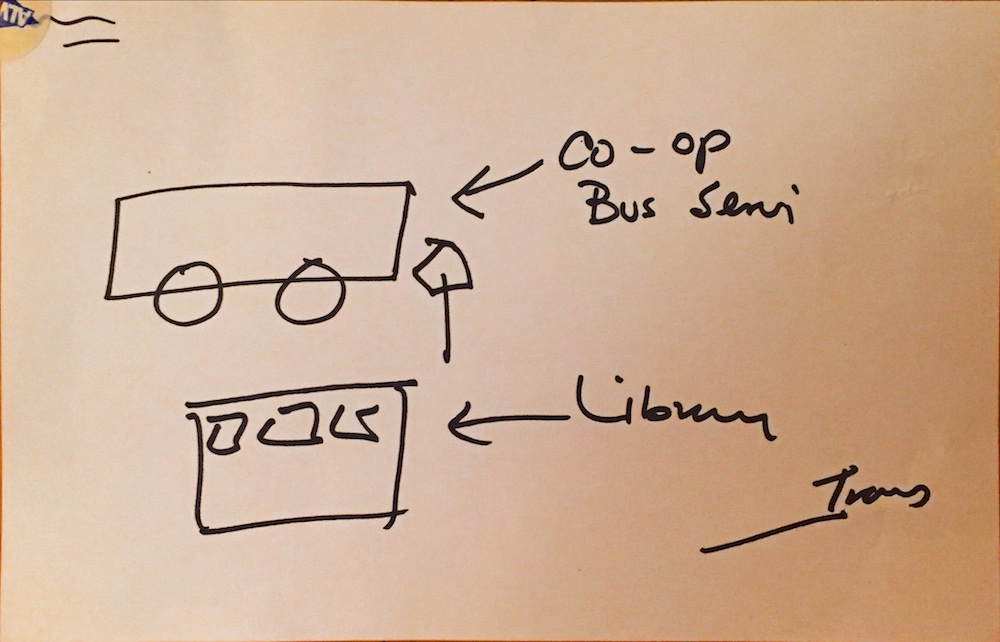 Co-op
Bus Servi
Library
Trans